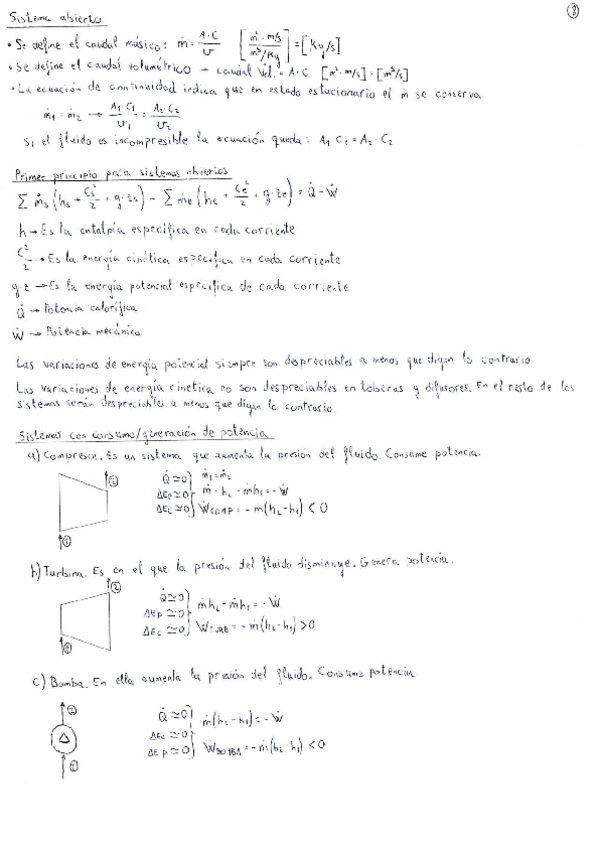 Sistema abierto
②
• Se define el caudal másico: ṁ = A·C/v [m²·m/s / m³/Kg] = [Kg/s]
• Se define el caudal volumétrico → caudal Vol. = A·C [m²·m/s] = [m³/s]
• La ecuación de continuidad indica que en estado estacionario el ṁ se conserva
ṁ₁ = ṁ₂ → A₁·C₁/v₁ = A₂·C₂/v₂
Si el fluido es incompresible la ecuación queda: A₁ C₁ = A₂·C₂
Primer principio para sistemas abiertos
∑ ṁs (hs + Cs²/2 + g·zs) - ∑ ṁe (he + Ce²/2 + g·ze) = Q̇ - Ẇ
h → Es la entalpía específica en cada corriente
C²/2 → Es la energía cinética específica en cada corriente
g·z → Es la energía potencial específica de cada corriente
Q̇ → Potencia calorífica
Ẇ → Potencia mecánica
Las variaciones de energía potencial siempre son despreciables a menos que digan lo contrario.
Las variaciones de energía cinética no son despreciables en toberas y difusores. En el resto de los
sistemas serán despreciables a menos que digan lo contrario.
Sistemas con consumo/generación de potencia
a) Compresor. Es un sistema que aumenta la presión del fluido. Consume potencia.
②
Q̇ ≃ 0 ṁ₁ = ṁ₂
ΔEp ≃ 0 ṁ·h₂ - ṁh₁ = -Ẇ
ΔEc ≃ 0 Ẇcomp = -ṁ(h₂-h₁) < 0
①
b) Turbina. Es en el que la presión del fluido disminuye. Genera potencia.
②
Q̇ ≃ 0
ΔEp ≃ 0 ṁh₂ - ṁh₁ = -Ẇ
ΔEc ≃ 0 ẆTURB = -ṁ(h₂-h₁) > 0
①
c) Bomba. En ella aumenta la presión del fluido. Consume potencia
②
Q̇ ≃ 0 ṁ(h₂-h₁) = -Ẇ
ΔEc ≃ 0
ΔEp ≃ 0 ẆBOMBA = -ṁ(h₂-h₁) < 0
①